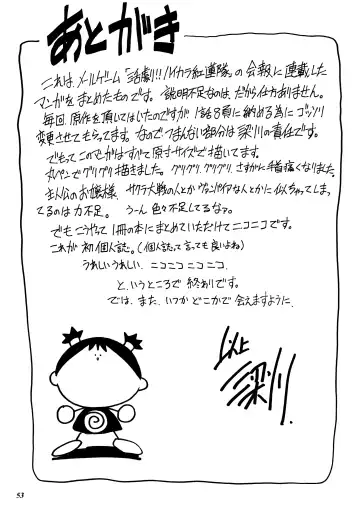 あとがき
これは、メールゲーム『活劇!!ハイカラ紅連隊』の会報に連載した
マンガをまとめたものです。説明不足なのは、だから仕方ありません。
毎回、原作を頂してはいたのですが、1話8頁に納める為にゴッソリ
変更させてもらってます。なので、つまんない部分は深川の責任です。
でもって このマンガはすべて原寸サイズで描いてます。
丸ペンでグリグリ描きました。グリグリ、グリグリ、さすがに手首痛くなりました。
主人公のお嬢様、サクラ大戦の人とかヴァンパイアなんとかに似ちゃってしまっ
てるのは力不足。うーん 色々不足してるなァ。
でも こうやって 1冊の本にまとめていただけてニコニコです。
これが 初 個人誌。(個人誌って言っても良いよね)
うれしいうれしい ニコニコニコニコ.
と、いうところで 終わりです。
では、また、いつか どこかで 会えますように.
以上
深川.
53